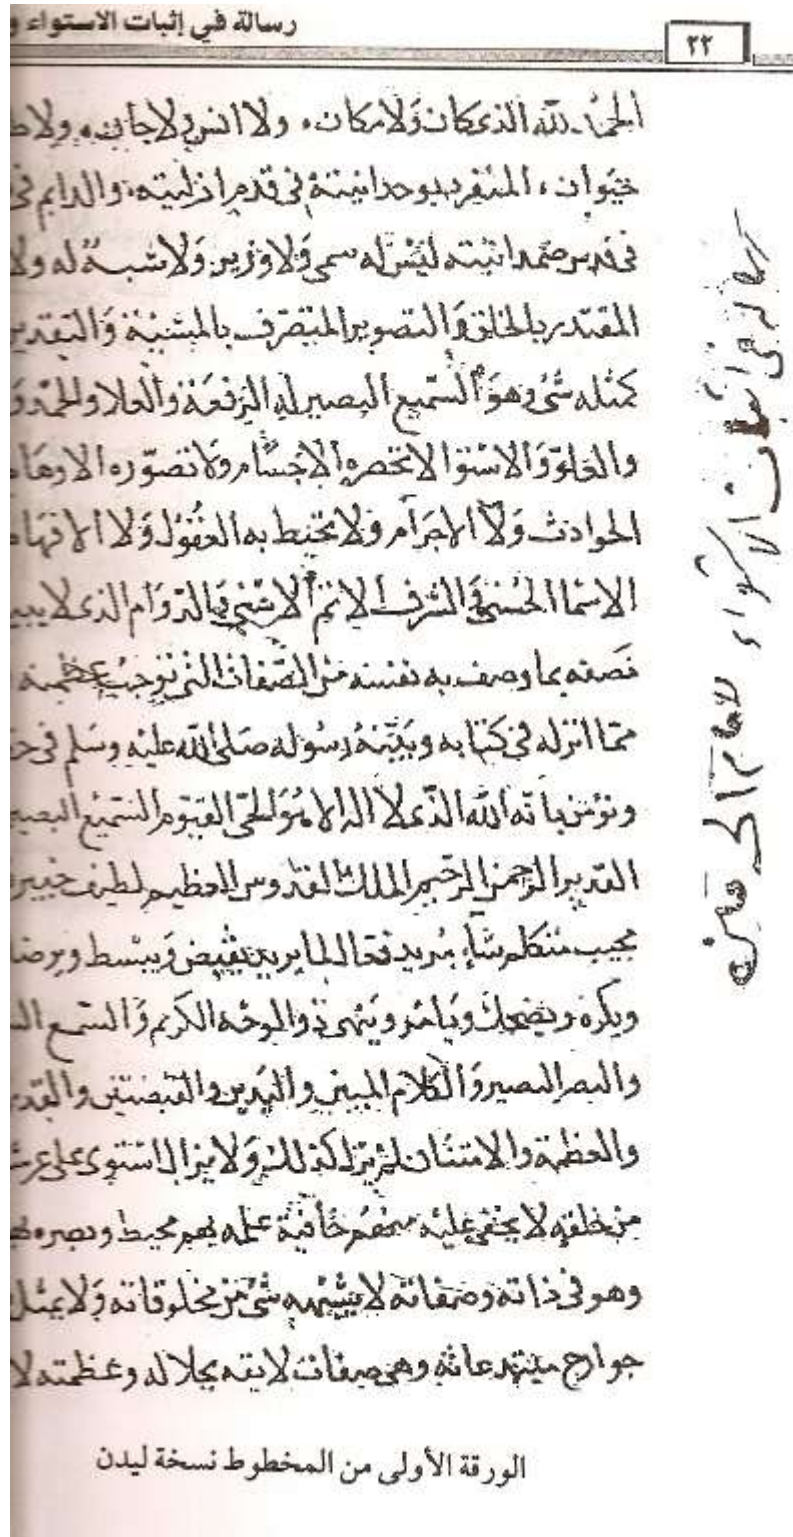 رسالة في إثبات الاستواء و
٢٢
الحمد لله الذي كان ولا مكان، ولا انس ولا جان، ولا
حيوان، المنفرد بوحدانيته في قدم ازليته، والدايم في
في قدس صمدانيته ليس له سمي ولا وزير ولا شبيه له ولا
المقتدر بالخلق والتصوير المتصرف بالمشيئة والتقدير
كمثله شئ وهو السميع البصير له الرفعة والعلا والحمد و
والعلو والاستوا لا تحصره الاجسام ولا تصوره الاوهام
الحوادث ولا الاجرام ولا تحيط به العقول ولا الافهام
الاسما الحسنى والشرف الاتم الاسنى والدوام الذي لا يبيد
نصفه بما وصف به نفسه من الصفات التي توجب عظمته
مما انزله في كتابه وبينه رسوله صلى الله عليه وسلم في
ونؤمن بانه الله الذي لا اله الا هو الحي القيوم السميع البصير
القدير الرحمن الرحيم الملك القدوس العظيم لطيف خبير
مجيب متكلم شاء مريد فعال لما يريد يقبض ويبسط ويرضى
ويكره ويضحك ويامر وينهى ذو الوجه الكريم والسمع
والبصر البصير والكلام المبين واليدين والقبضتين والقدرة
والعظمة والامتنان لم يزل كذلك ولا يزال استوى على عرشه
من خلقه لا يخفى عليه منهم خافية علمه بهم محيط وبصره
وهو في ذاته وصفاته لا يشبهه شئ من مخلوقاته ولا يمثل
جوارح مبتدعاته وهي صفات لايقه بجلاله وعظمته لا
رسالة في اثبات الاستواء للامام الجويني
الورقة الأولى من المخطوط نسخة ليدن